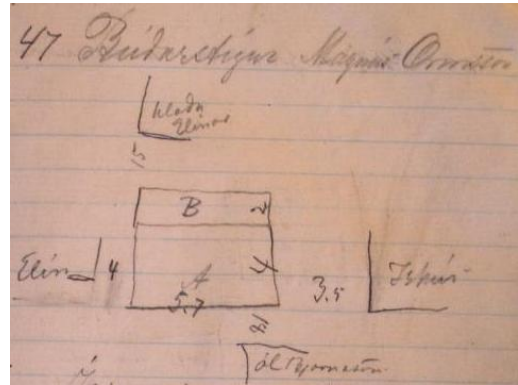 47 Búðarstígur Magnús Ormsson
hlaða
Elínar
15
B 2
Elín 4 A 4
5.7 3.5 Íshús
18
ól Bjarnason